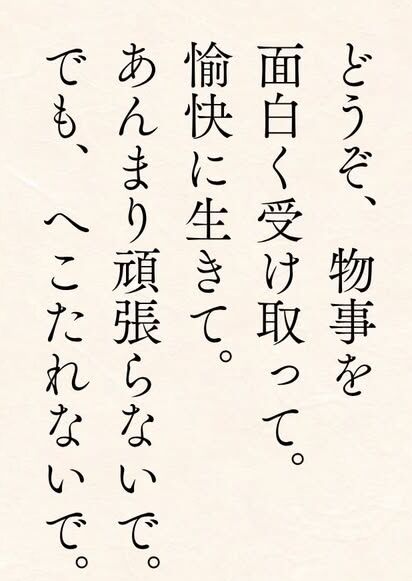 どうぞ、物事を
面白く受け取って。
愉快に生きて。
あんまり頑張らないで。
でも、へこたれないで。